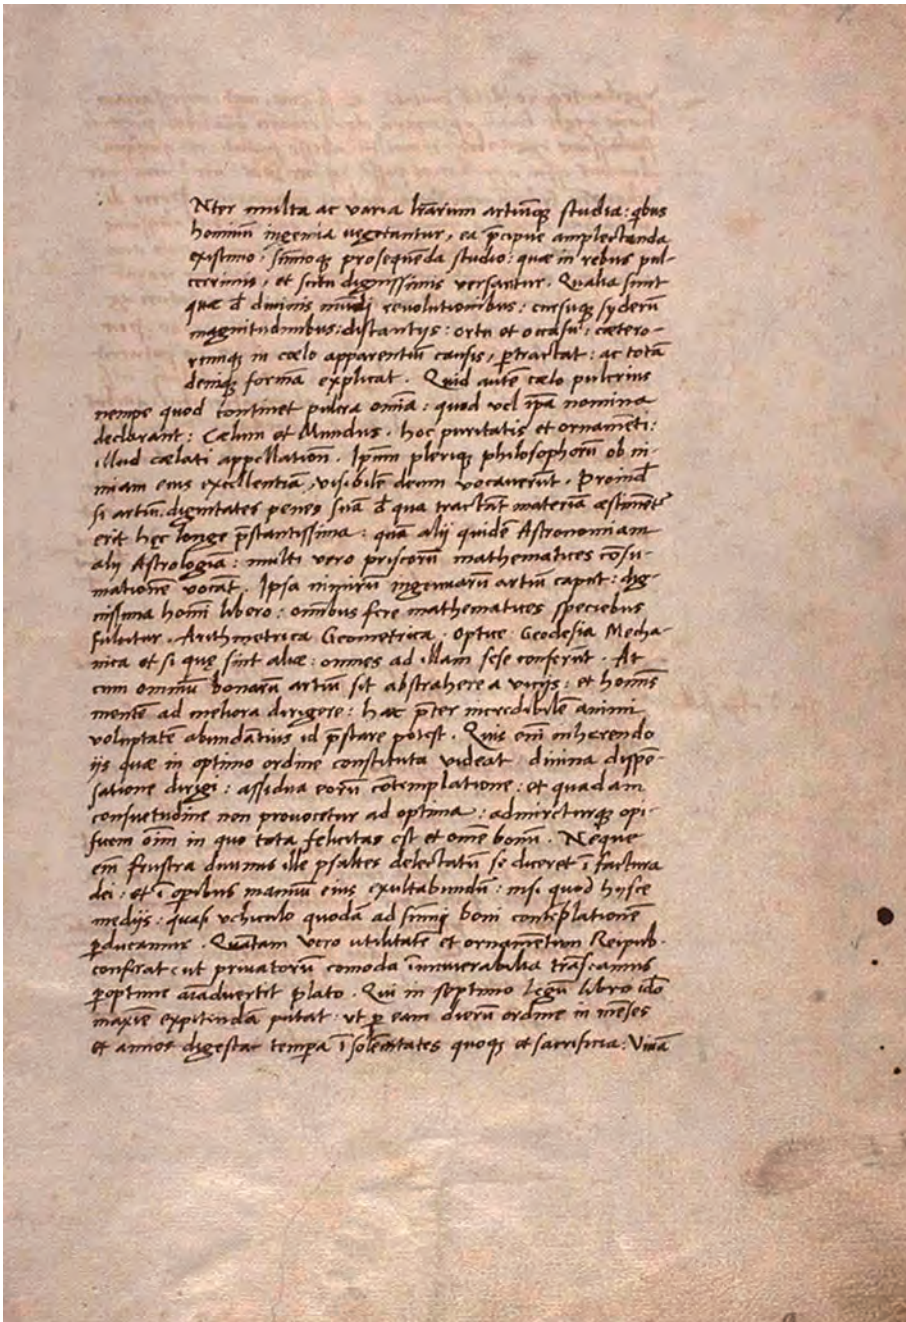 Nter multa ac varia lr̄arum artiūqȝ studia: qbus
hominū ingenia vegetantur, ea p̄cipue amplectanda
existimo, sūmoqȝ prosequēda studio: quæ in rebus pul-
cerrimis, et scitu dignissimis versantur. Qualia sunt
quæ d̄ divinis mūdi revolutionibus: cursuqȝ syderū
magnitudinibus: distantijs: ortu et occasu, cætero-
rumqȝ in cœlo apparentiū causis, ꝑtractat: ac totā
deniqȝ formā explicat. Quid autē cælo pulcrius
nempe quod continet pulcra omīa: quod vel ip̄a nomina
declarant: Cælum et Mundus. hoc puritatis et ornamēti:
illud cælati appellationē. Ipsum pleriqȝ philosophorū ob ni-
miam eius excellentiā, visibilē deum vocaverūt. Proind̄
si artiū dignitates penes suā d̄ qua tractāt materiā æstimēt᷑
erit hęc longe p̄stantissima: quā alij quidē Astronomiam
alij Astrologiā: multi vero priscorū mathematices cōsu-
mationē vocāt. Ipsa nimirū ingenuarū artiū caput: dig-
nissima homī libero: omībus fere mathematices speciebus
fulcitur. Arithmetrica Geometrica. Optice Geodesia Mecha-
nica et si quę sint aliæ: omnes ad illam sese conferūt. At
cum omniū bonarū artiū sit abstrahere a vicijs: et homīs
mentē ad meliora dirigere: hæc p̄ter incredibilē animi
voluptatē abundātius id p̄stare potest. Quis em̄ inherendo
ijs quæ in optimo ordine constituta videat divina dispē-
satione dirigi: assidua eorū cōtemplatione: et quadam
consuetudine non provocetur ad optima: admireturqȝ opi-
ficem oīm in quo tota felicitas est et omē bonū. Neque
em̄ frustra divinus ille psaltes delectatū se diceret ī factura
dei: et ī operibus manuū eius exultabundū: nisi quod hysce
medijs: quasi vehiculo quodā ad sūmi boni contēplationē
ꝑducamur. Quātam vero utilitatē et ornamētum Reipub.
conferat: ut privatorū comoda īnumerabilia trāseamus
ꝑoptime aīadvertit plato. Qui in septimo legū libro ido
maxīe expetendā putat: ut ꝑ eam dierū ordine in mēses
et annos digesta tempora ī solēnitates quoqȝ et sacrificia: Vivā